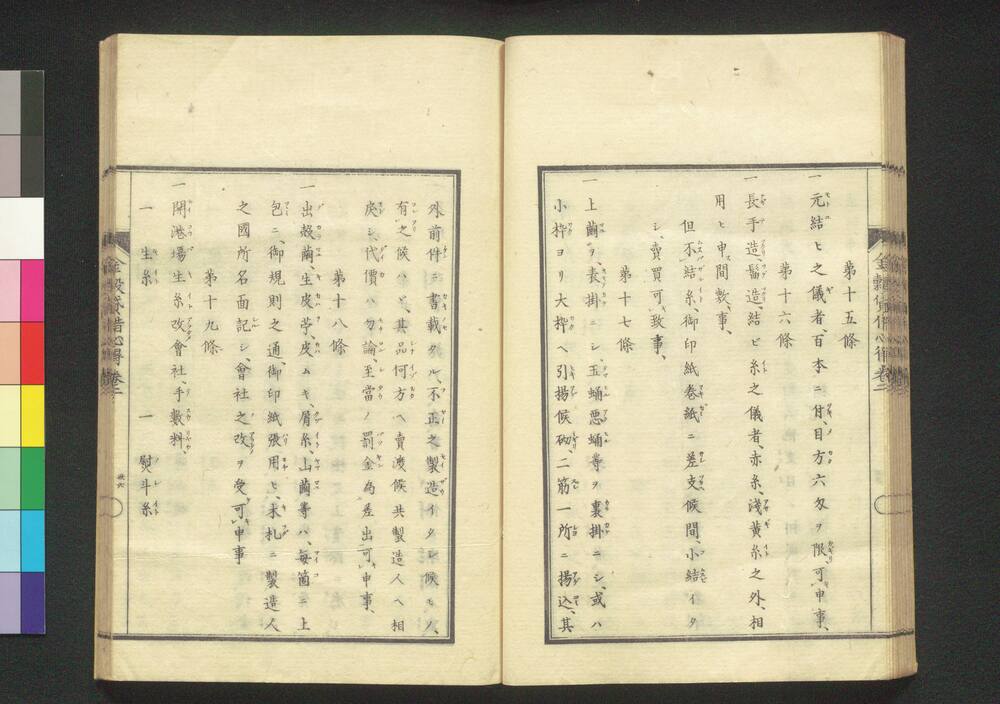 第十五條
一元結ヒ之儀者、百本ニ付、目方六匁ヲ限可申事、
第十六條
一長手造、鬠造、結ヒ糸之儀者、赤糸、淺黄糸之外、相
用ヒ申間敷事、
但不結糸、御印紙巻紙ニ差支候間、小結イタ
シ、賣買可致事、
第十七條
一上繭ヲ、表掛ニシ、玉蛹悪蛹等ヲ裏掛ニシ、或ハ
小枠ヨリ大枠ヘ引揚候砌、二筋一所ニ揚込、其
外前件ニ書載タル、不正之製造イタシ候モノ、
有之候ハヾ、其品何方ヘ賣渡候共製造人ヘ相
戻シ、代價ハ勿論、至當ノ罰金為差出可申事、
第十八條
一出殻繭、生皮苧、皮ムキ、屑糸、山繭等ハ、毎箇ニ上
包ニ、御規則之通、御印紙張用ヒ、木札ニ製造人
之國所名面記シ、會社之改ヲ受可申事
第十九條
一開港場生糸改會社、手數料、
一 生糸 一 熨斗糸